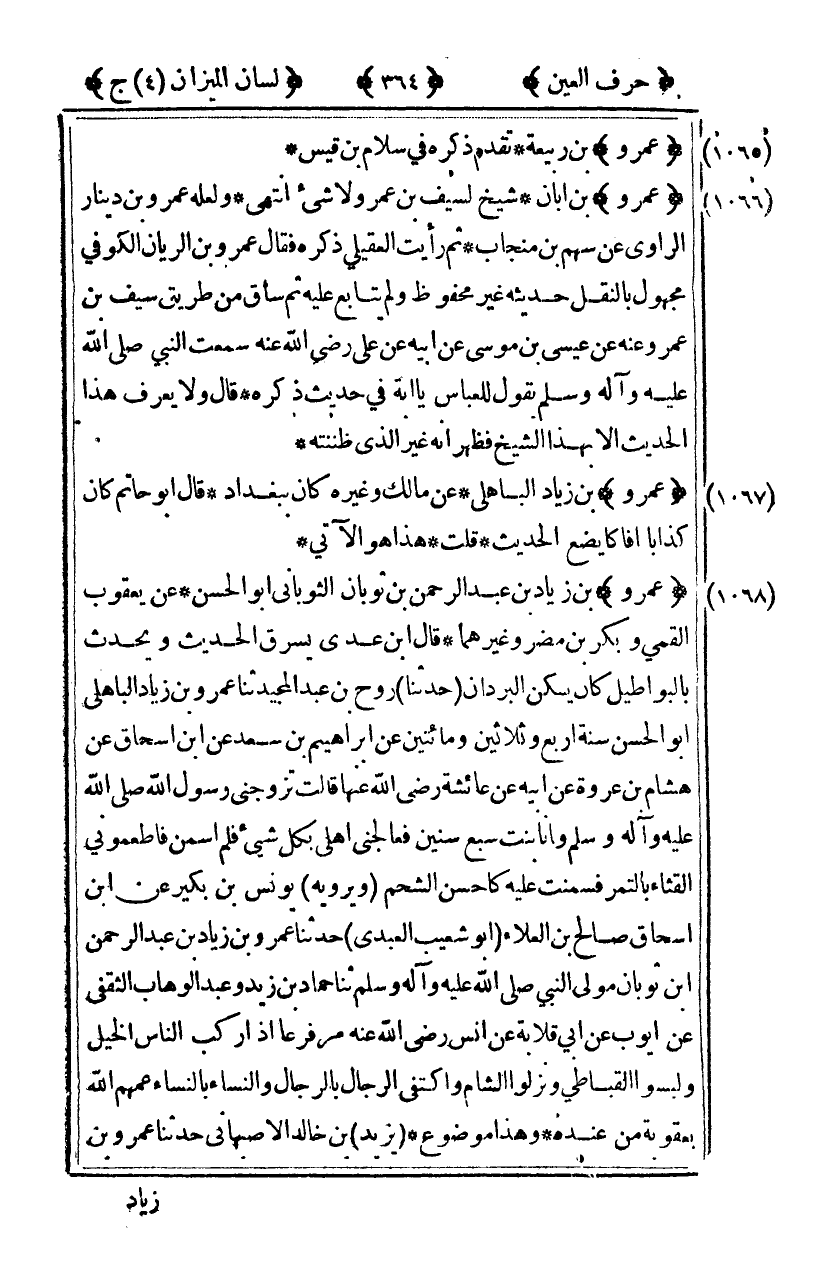 ﴿ حرف العين ﴾ ﴿ ٣٦٤ ﴾ ﴿ لسان الميزان (٤) ج ﴾
(١٠٦٥) ﴿ عمرو ﴾ بن ربيعة * تقدم ذكره في سلام بن قيس *
(١٠٦٦) ﴿ عمرو ﴾ بن ابان * شيخ لسيف بن عمر ولا شئ انتهى * ولعله عمرو بن دينار
الراوى عن سهم بن منجاب * ثم رأيت العقيلي ذكره فقال عمرو بن الريان الكوفي
مجهول بالنقل حديثه غير محفوظ ولم يتابع عليه ثم ساق من طريق سيف بن
عمر وعنه عن عيسى بن موسى عن ابيه عن على رضي الله عنه سمعت النبي صلى الله
عليه وآله وسلم يقول للعباس يا ابة في حديث ذكره * قال ولا يعرف هذا
الحديث الا بهذا الشيخ فظهر انه غير الذى ظننته *
(١٠٦٧) ﴿ عمرو ﴾ بن زياد الباهلى * عن مالك وغيره كان ببغداد * قال ابو حاتم كان
كذابا افاكا يضع الحديث * قلت * هذا هو الآتي *
(١٠٦٨) ﴿ عمرو ﴾ بن زياد بن عبد الرحمن بن ثوبان الثوبانى ابو الحسن * عن يعقوب
القمي و بكر بن مضر وغيرهما * قال ابن عدى يسرق الحديث و يحدث
بالبواطيل كان يسكن البردان (حدثنا) روح بن عبد المجيد ثنا عمرو بن زياد الباهلى
ابو الحسن سنة اربع وثلاثين ومائتين عن ابراهيم بن سعد عن ابن اسحاق عن
هشام بن عروة عن ابيه عن عائشة رضى الله عنها قالت تزوجنى رسول الله صلى الله
عليه وآله وسلم وانا بنت سبع سنين فعالجنى اهلى بكل شيئ فلم اسمن فاطعموني
القثاء بالتمر فسمنت عليه كاحسن الشحم (ويرويه) يونس بن بكير عن ابن
اسحاق صالح بن العلاء (ابو شعيب العبدى) حدثنا عمرو بن زياد بن عبد الرحمن
ابن ثوبان مولى النبي صلى الله عليه وآله وسلم ثنا حماد بن زيد وعبد الوهاب الثقفى
عن ايوب عن ابي قلابة عن انس رضى الله عنه مرفوعا اذا ركب الناس الخيل
ولبسوا القباطي ونزلوا الشام واكتفى الرجال بالرجال والنساء بالنساء عمهم الله
بعقوبة من عنده * وهذا موضوع * (يزيد) بن خالد الاصبهانى حدثنا عمرو بن
زياد